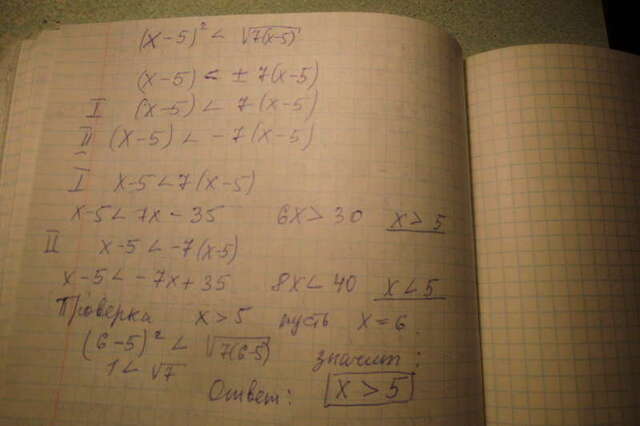 (x-5)² < √7(x-5)
(x-5) < ± 7(x-5)
I (x-5) < 7(x-5)
II (x-5) < -7(x-5)
I x-5 < 7(x-5)
x-5 < 7x - 35 6x > 30 x > 5
II x-5 < -7(x-5)
x-5 < -7x + 35 8x < 40 x < 5
Проверка x > 5 пусть x = 6
(6-5)² < √7(6-5) значит:
1 < √7
Ответ: x > 5